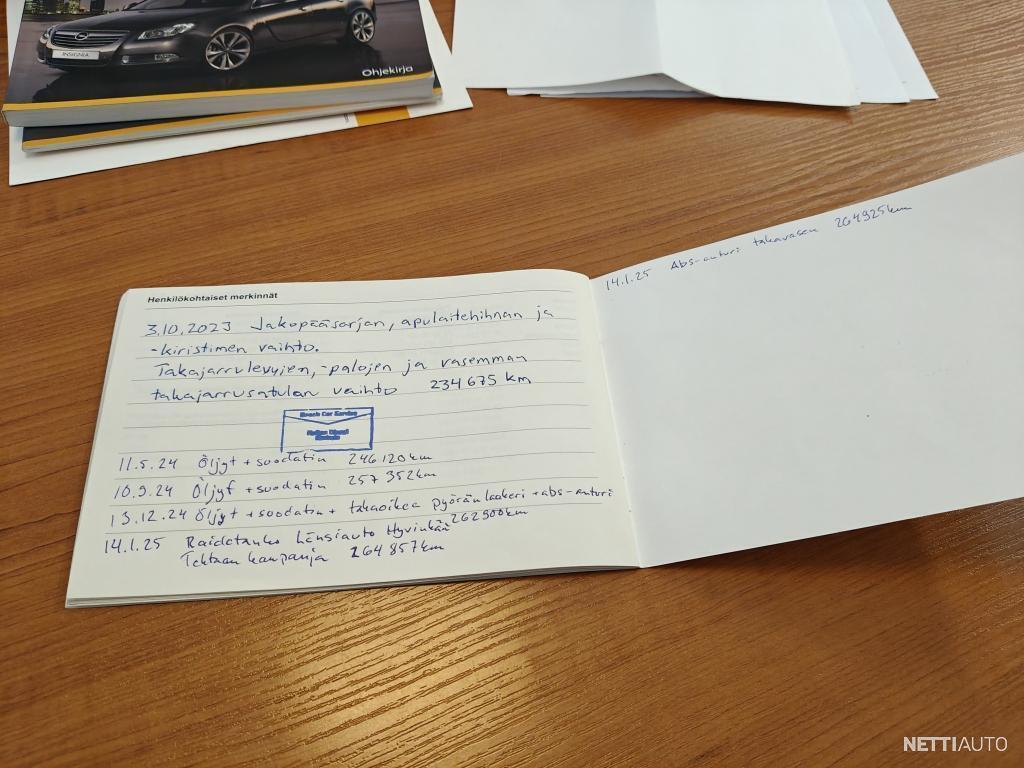 INSIGNIA
Ohjekirja
Henkilökohtaiset merkinnät
3.10.2023 Jakopääsarjan, apulaitehihnan ja
-kiristimen vaihto.
Takajarrulevyjen,-palojen ja vasemman
takajarrusatulan vaihto 234 675 km
Bosch Car Service
11.5.24 Öljyt + suodatin 246 120km
10.9.24 Öljyt + suodatin 257 352km
13.12.24 Öljyt + suodatin + takaoikea pyöränlaakeri + abs-anturi
262900km
14.1.25 Raidetanko Länsiauto Hyvinkää
Tehtaan kampanja 264 857km
14.1.25 Abs-anturi takavasen 264925km
NETTIAUTO